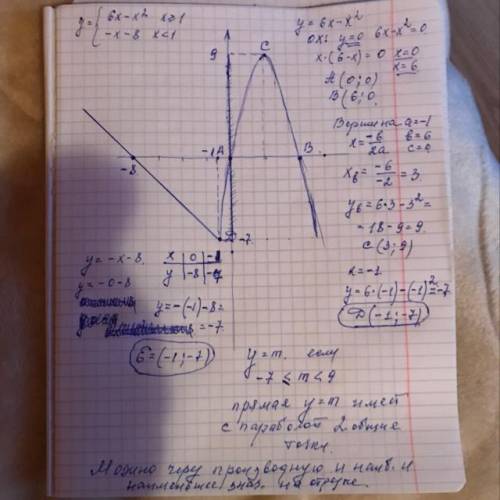 y = { 6x - x² x ≥ 1
-x - 8 x < 1
y = 6x - x²
ox: y=0 6x - x² = 0
x·(6-x) = 0 x=0
x=6
A(0; 0)
B(6; 0
Вершина a = -1
x = -в/2a в = 6
c = 0
xв = -6/-2 = 3
yв = 6·3 - 3² =
= 18 - 9 = 9
C(3; 9)
x = -1
y = 6·(-1) - (-1)² = -7
D(-1; -7)
9
C
-8
-1
A
B
D -7
y = -x - 8
x | 0 | -1
y | -8 | -7
y = -0 - 8
y = -(-1) - 8 =
= -7
E = (-1; -7)
y = m. если
-7 ≤ m < 9
прямая y = m имеет
с параболой 2 общие
точки.
Можно через производную и наиб. и
наименьшее знач. на отрезке